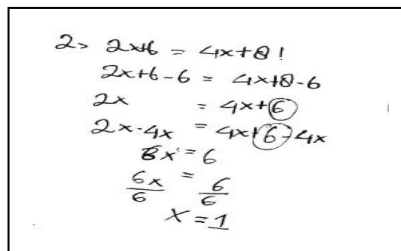 2> 2x+6 = 4x+8!
2x+6-6 = 4x+8-6
2x = 4x+6
2x-4x = 4x+6-4x
6x = 6
6x/6 = 6/6
x = 1